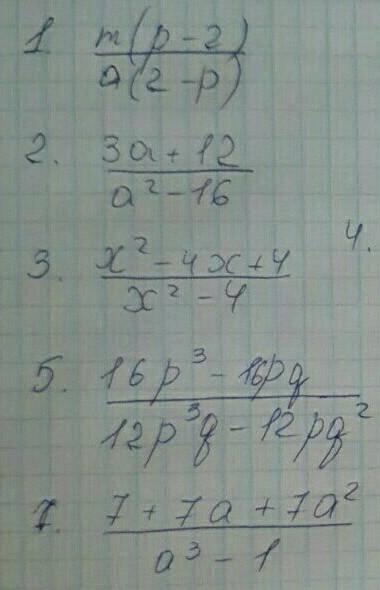 1. m(p-2)
a(2-p)
2. 3a+12
a²-16
4.
3. x²-4x+4
x²-4
5. 16p³-16pq
12p³q-12pq²
7. 7+7a+7a²
a³-1